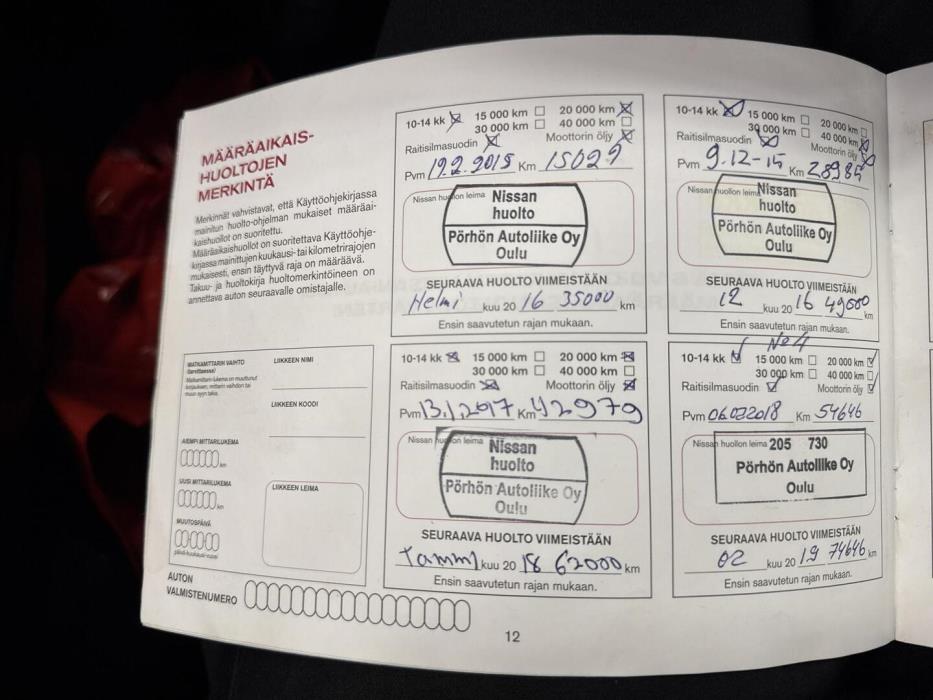 MÄÄRÄAIKAIS-
HUOLTOJEN
MERKINTÄ
Merkinnät vahvistavat, että Käyttöohjekirjassa
mainitun huolto-ohjelman mukaiset määräai-
kaishuollot on suoritettu.
Määräaikaishuollot on suoritettava Käyttöohje-
kirjassa mainittujen kuukausi- tai kilometrirajojen
mukaisesti, ensin täyttyvä raja on määräävä.
Takuu- ja huoltokirja huoltomerkintöineen on
annettava auton seuraavalle omistajalle.
10-14 kk 15 000 km 20 000 km
30 000 km 40 000 km
Raitisilmasuodin Moottorin öljy
Pvm 19.2.2015 Km 15029
Nissan huollon leima
Nissan
huolto
Pörhön Autoliike Oy
Oulu
SEURAAVA HUOLTO VIIMEISTÄÄN
Helmi kuu 20 16 35000 km
Ensin saavutetun rajan mukaan.
10-14 kk 15 000 km 20 000 km
30 000 km 40 000 km
Raitisilmasuodin Moottorin öljy
Pvm 9.12-15 Km 28985
Nissan huollon leima
Nissan
huolto
Pörhön Autoliike Oy
Oulu
SEURAAVA HUOLTO VIIMEISTÄÄN
12 kuu 20 16 49000 km
Ensin saavutetun rajan mukaan.
MATKAMITTARIN VAIHTO
(tarvittaessa)
Matkamittarin lukema on muuttunut
korjauksen, mittarin vaihdon tai
muun syyn takia.
AIEMPI MITTARILUKEMA
km
UUSI MITTARILUKEMA
km
MUUTOSPÄIVÄ
päivä-kuukausi-vuosi
LIIKKEEN NIMI
LIIKKEEN KOODI
LIIKKEEN LEIMA
AUTON
VALMISTENUMERO
10-14 kk 15 000 km 20 000 km
30 000 km 40 000 km
Raitisilmasuodin Moottorin öljy
Pvm 13.1.2017 Km 42979
Nissan huollon leima
Nissan
huolto
Pörhön Autoliike Oy
Oulu
SEURAAVA HUOLTO VIIMEISTÄÄN
Tammi kuu 20 18 62000 km
Ensin saavutetun rajan mukaan.
No 4
10-14 kk 15 000 km 20 000 km
30 000 km 40 000 km
Raitisilmasuodin Moottorin öljy
Pvm 06.022018 Km 54646
Nissan huollon leima 205 730
Pörhön Autoliike Oy
Oulu
SEURAAVA HUOLTO VIIMEISTÄÄN
02 kuu 20 19 74646 km
Ensin saavutetun rajan mukaan.
12